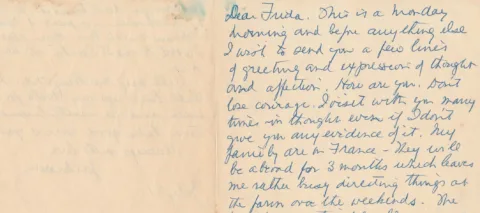 Dear Frida. This is a Monday
morning and before anything else
I wish to send you a few lines
of greeting and expression of thought
and affection. How are you. Don't
lose courage. I visit with you many
times in thought even if I don't
give you any evidence of it. My
family are in France - They will
be abroad for 3 months which leaves
me rather busy directing things at
the farm over the weekends. The